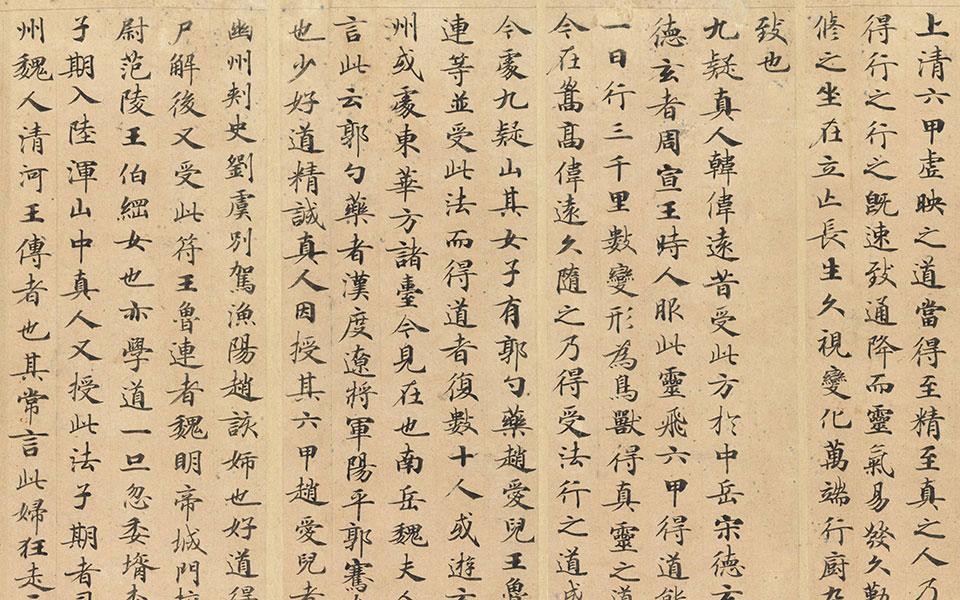 上清六甲虚映之道當得至精至真之人乃
得行之行之既速致通降而靈氣易發久勤
修之坐在立亡長生久視變化萬端行廚九
致也
九疑真人韓偉遠昔受此方於中岳宋德玄
德玄者周宣王時人服此靈飛六甲得道能
一日行三千里數變形為鳥獸得真靈之道
今在嵩高偉遠久隨之乃得受法行之道成
今處九疑山其女子有郭勺藥趙愛兒王魯
連等並受此法而得道者復數十人或遊玄
州或處東華方諸臺今見在也南岳魏夫人
言此云郭勺藥者漢度遼將軍陽平郭騫女
也少好道精誠真人因授其六甲趙愛兒者
幽州刺史劉虞別駕漁陽趙該姊也好道得
尸解後又受此符王魯連者魏明帝城門校
尉范陵王伯綱女也亦學道一旦忽委壻李
子期入陸渾山中真人又授此法子期者司
州魏人清河王傳者也其常言此婦狂走